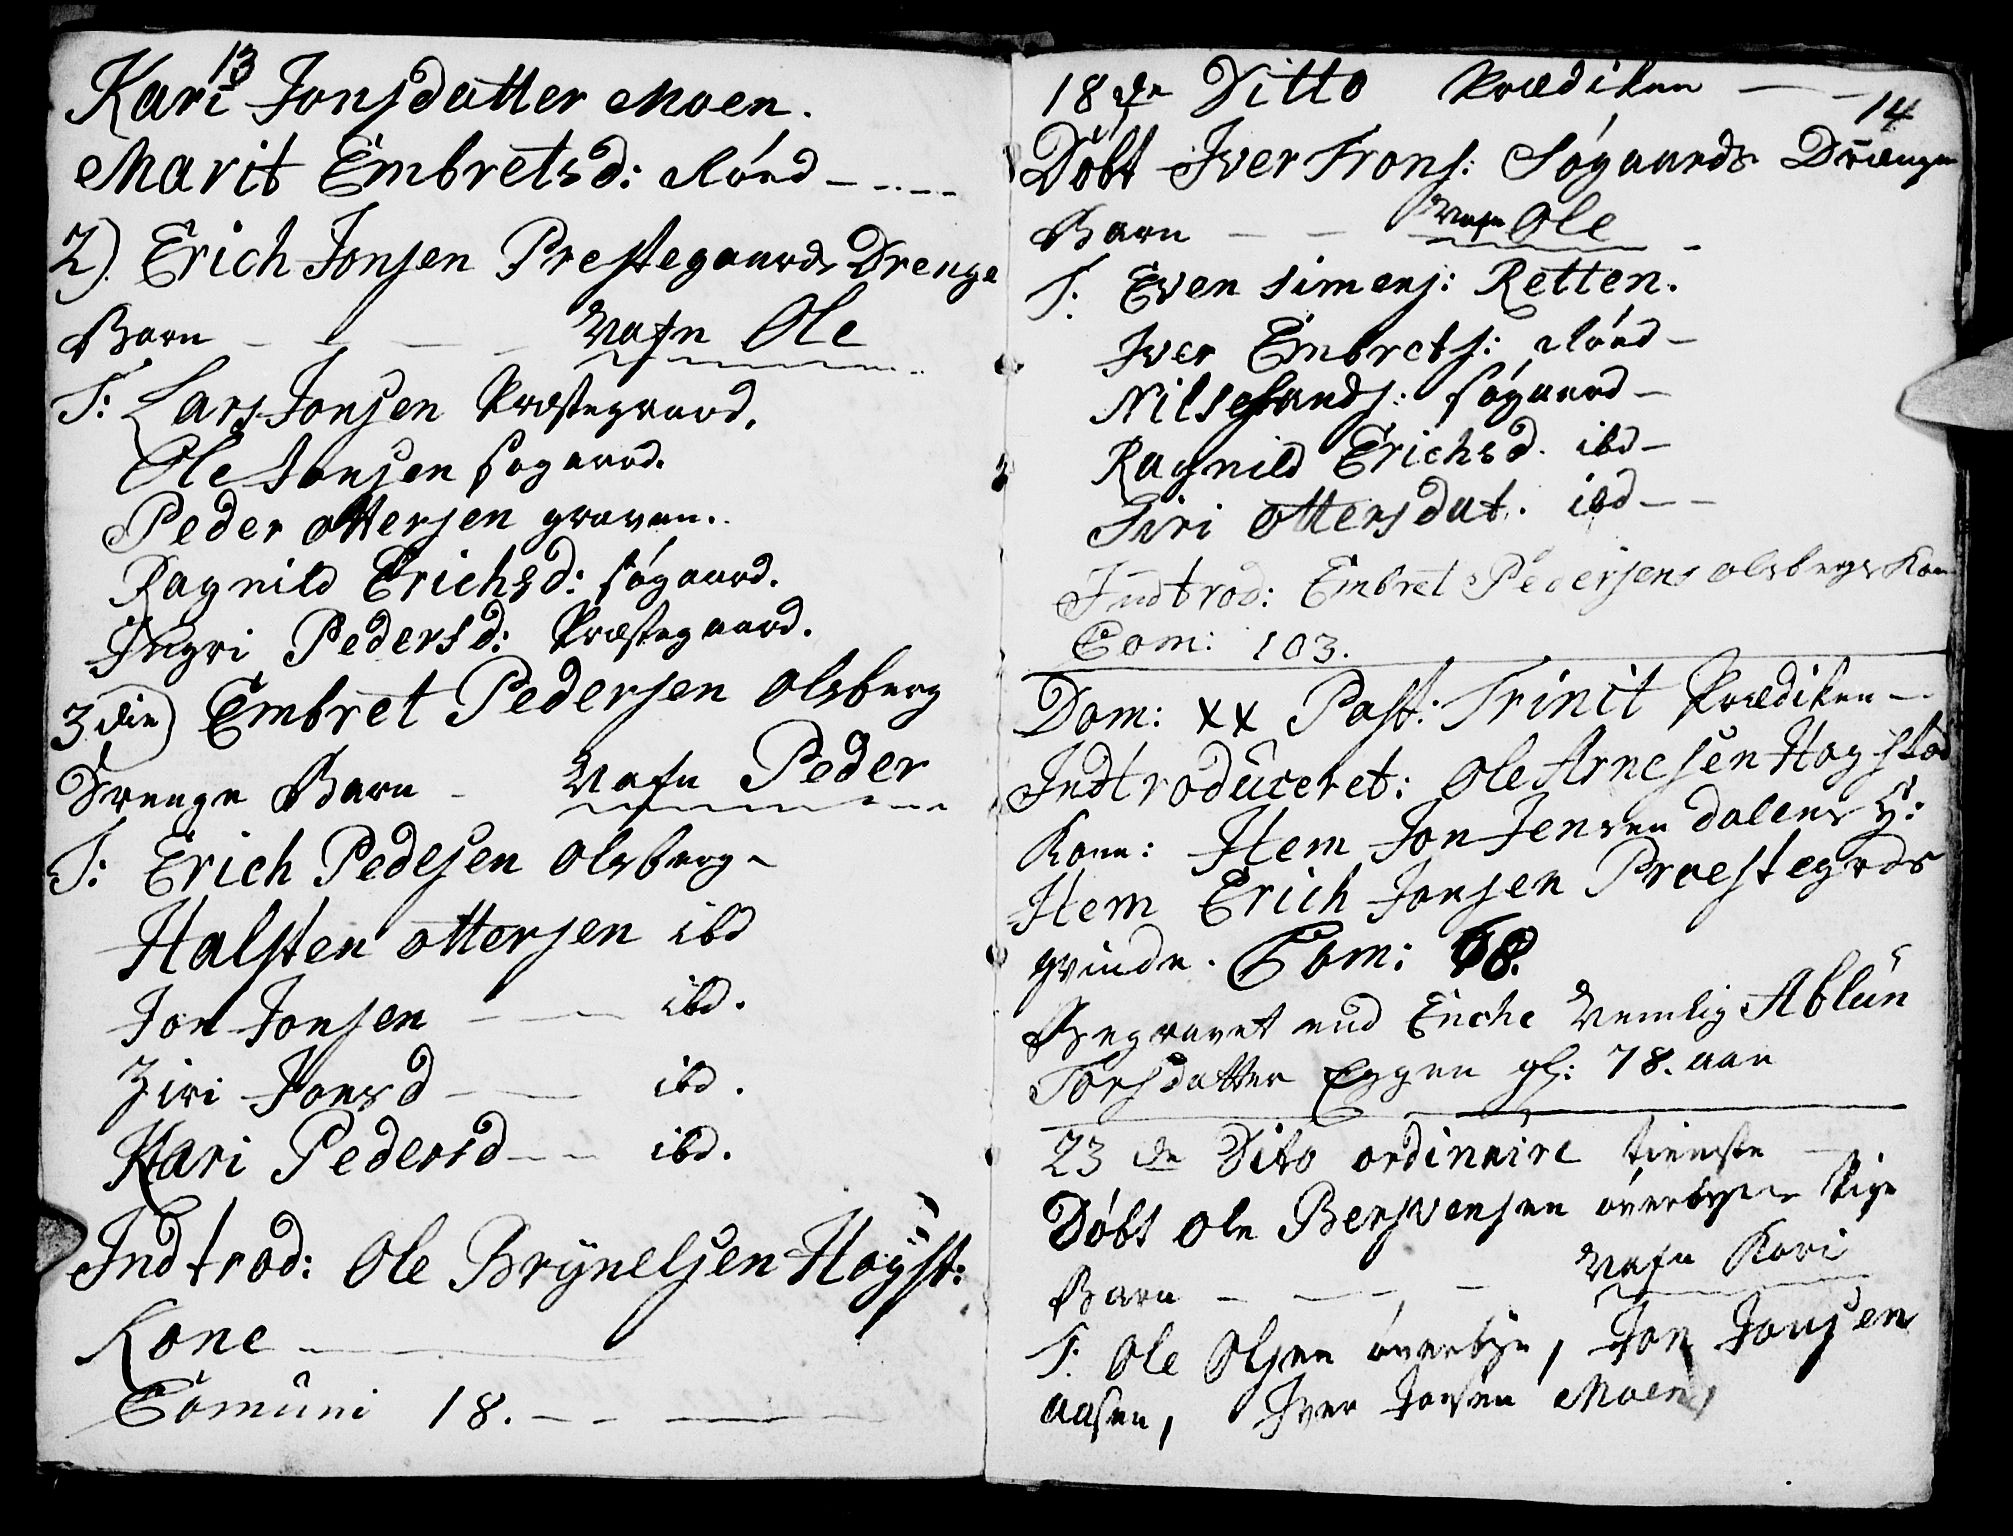 13
Kari Jonsdatter Moen.
Marit Embretsd: Rönd
2). Erich Jonsen Prestegaards Drenge
Barn Nafn Ole
T: Lars Jonsen Præstegaard.
Ole Jonsen Søgaard.
Peder Ottersen graven.
Ragnild Erichsd: Søgaard.
Ingri Pedersd: Præstegaard.
3die) Embret Pedersen Olsberg
Drenge Barn Nafn Peder
T: Erich Pedesen Olsberg
Halsten Ottersen ibd
Jon Jonsen ibd.
Ziri Jonsd ibd.
Kari Pedersd ibd.
Indtrod: Ole Brÿnelsen Høÿst:
Kone
Comuni 18.
14
18de Ditto Prædiken
Döbt Iver Trons: Søgaards Drænge
Barn Nafn Ole
T. Even Simens: Retten.
Iver Embrets: Rönd
Nils Hands: Søgaard
Ragnild Erichsd. ibd
Siri Ottersdat. ibd
Indtrod: Embret Pedersens Olsbergs Kone
Com: 103.
Dom: XX Post: Trinit Prædiken
Indtroduceret: Ole Arnesen Hogstad
Kone: Item Jon Jensen Dalens H:
Item Erich Jonsen Præstegrds
qvinde. Com: 68.
Begravet end Enche Nemlig Ablun
Torsdatter Eggen gl: 78. aar
23de Dito ordinaire tieneste
Döbt Ole Bersvensen överbyes Pige
Barn Nafn Kari
T. Ole Olsen överbye, Jon Jonsen
aasen, Iver Jonsen Moen,